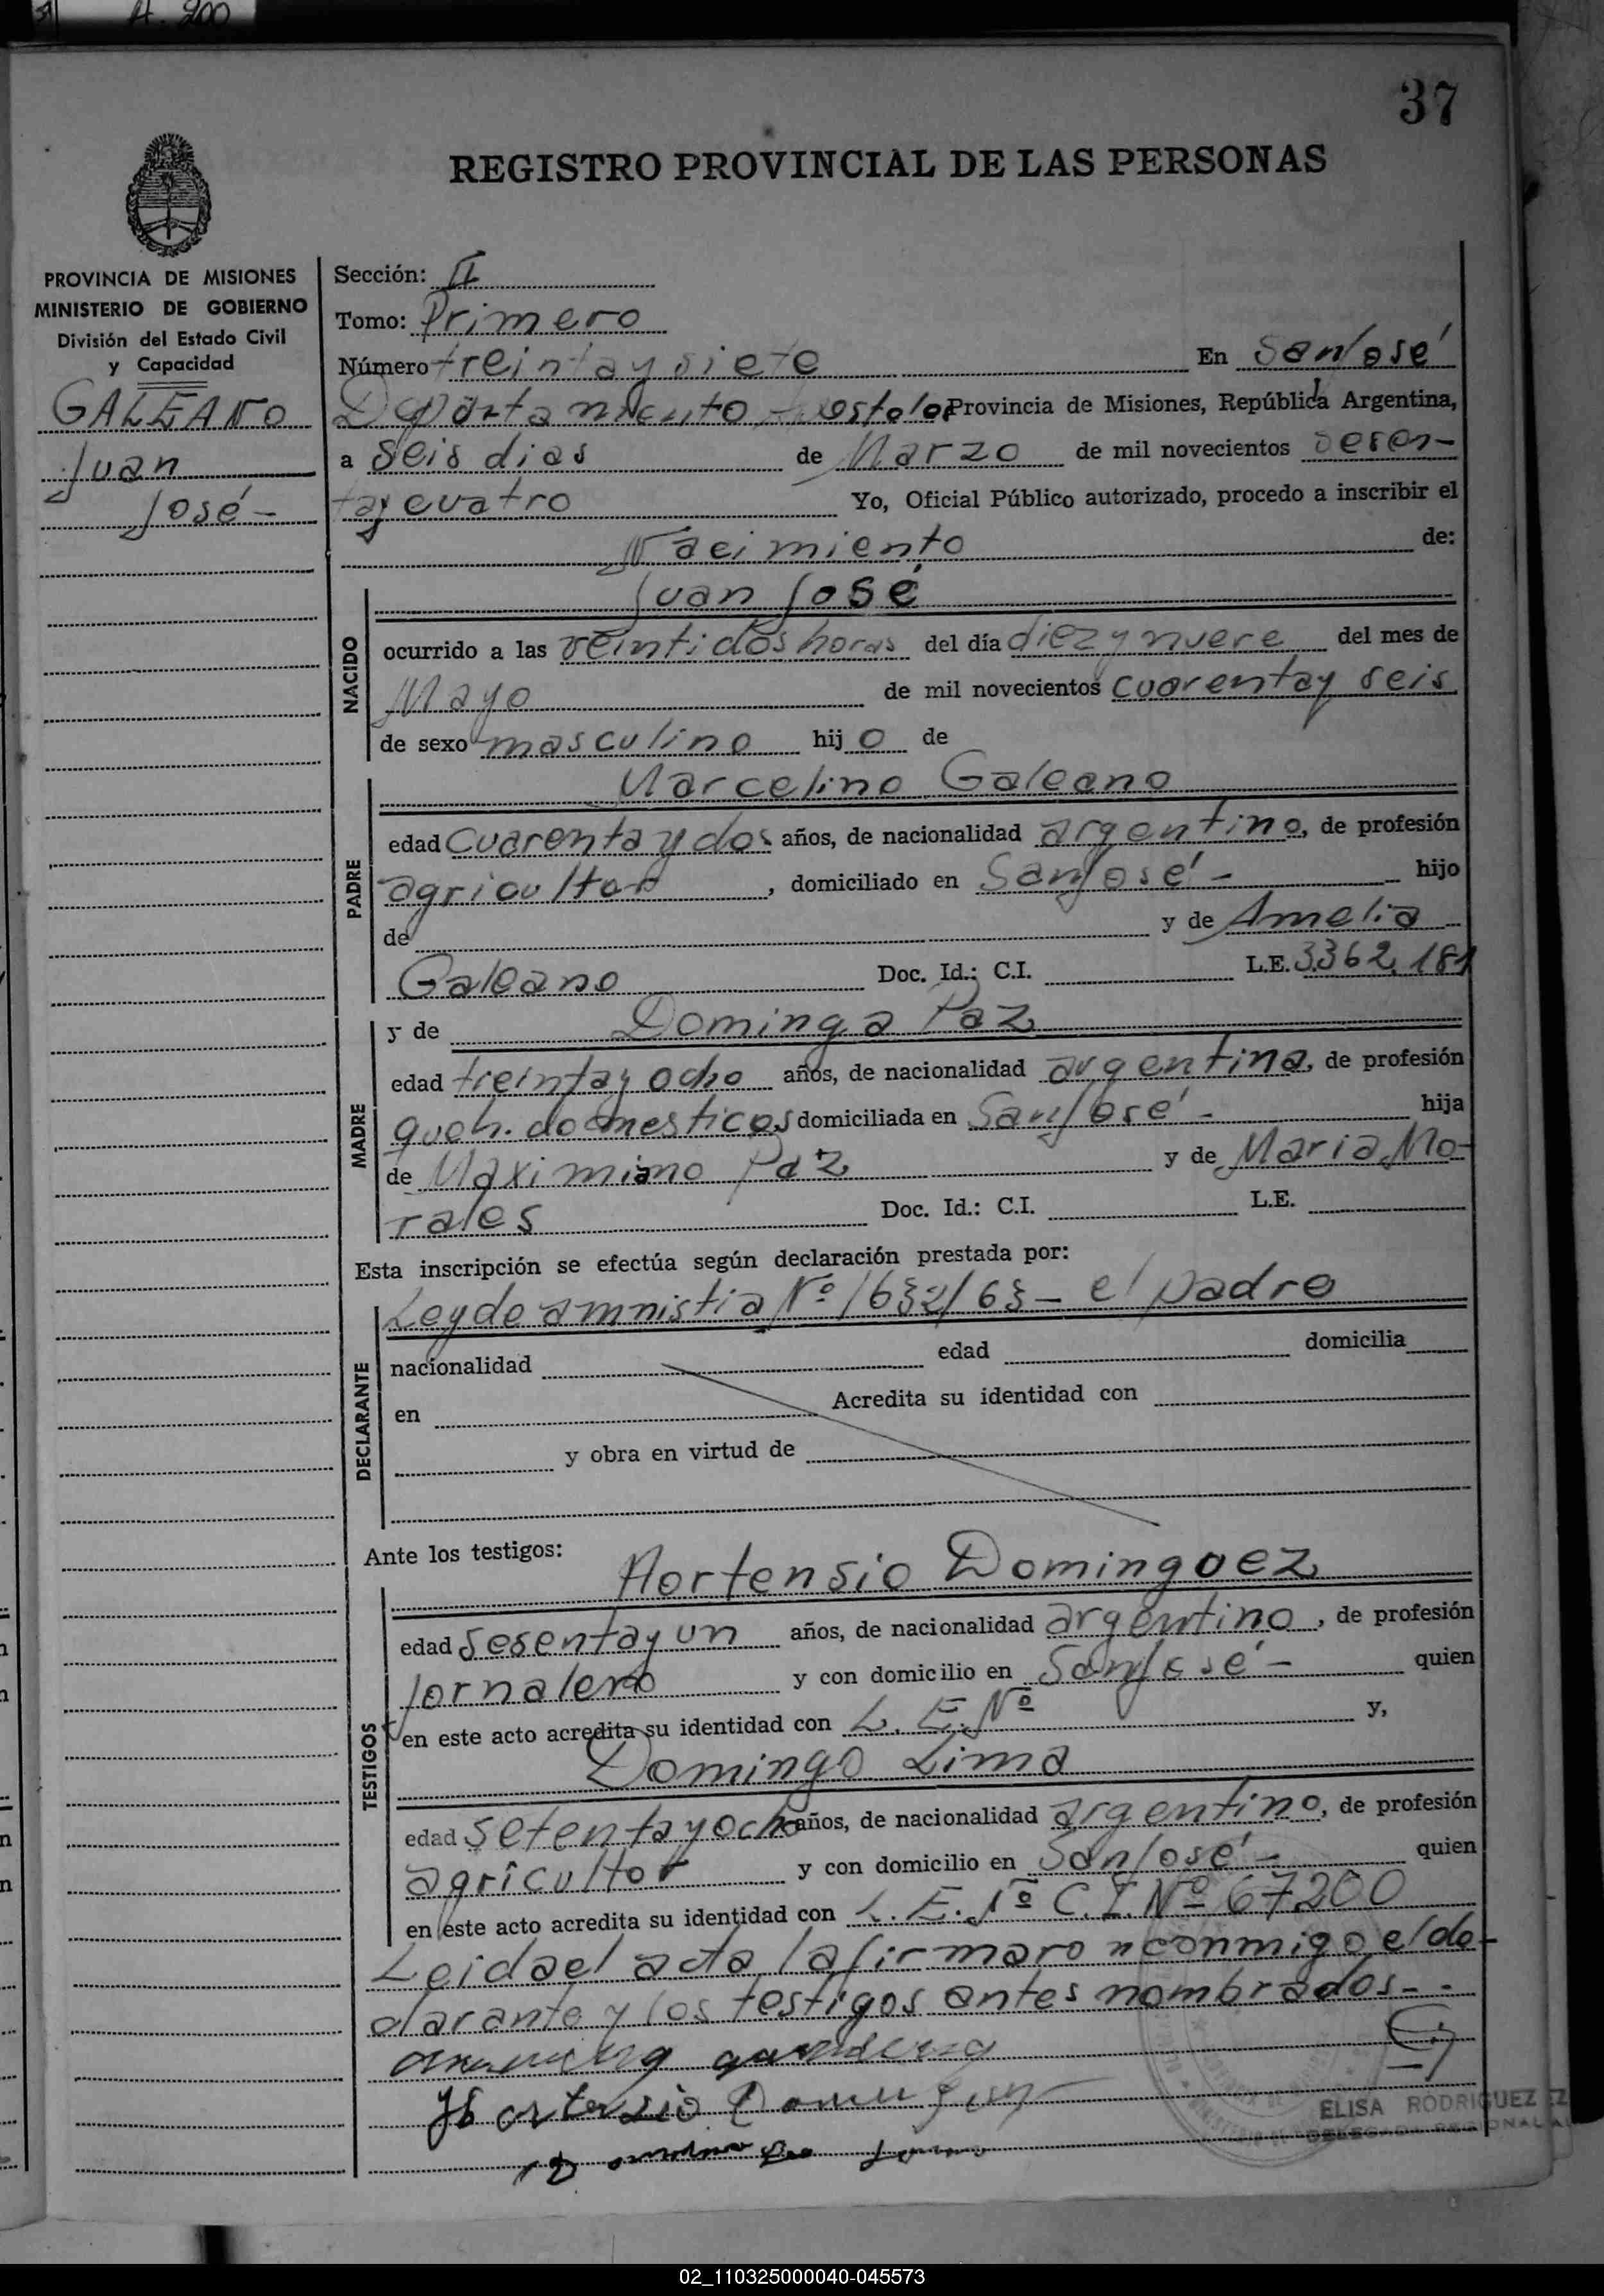 A. 200
37
REGISTRO PROVINCIAL DE LAS PERSONAS
PROVINCIA DE MISIONES
MINISTERIO DE GOBIERNO
División del Estado Civil
y Capacidad
GALEANO
Juan
José -
Sección: II
Tomo: Primero
Número treinta y siete En San José
Departamento Apostoles Provincia de Misiones, República Argentina,
a seis dias de Marzo de mil novecientos sesen-
ta y cuatro Yo, Oficial Público autorizado, procedo a inscribir el
Nacimiento de:
Juan José
NACIDO
ocurrido a las veintidos horas del día diez y nueve del mes de
Mayo de mil novecientos cuarenta y seis
de sexo masculino hijo de
Marcelino Galeano
PADRE
edad cuarenta y dos años, de nacionalidad argentino, de profesión
agricultor, domiciliado en San José - hijo
de y de Amelia
Galeano Doc. Id.: C.I. L.E. 3.362.181
MADRE
y de Dominga Paz
edad treinta y ocho años, de nacionalidad argentina, de profesión
queh. domesticos domiciliada en San José - hija
de Maximiano Paz y de Maria Mo-
rales Doc. Id.: C.I. L.E.
Esta inscripción se efectúa según declaración prestada por:
Ley de amnistia Nº 1632/63 - el padre
DECLARANTE
nacionalidad edad domicilia
en Acredita su identidad con
y obra en virtud de
Ante los testigos:
Hortensio Dominguez
TESTIGOS
edad sesenta y un años, de nacionalidad argentino, de profesión
Jornalero y con domicilio en San José - quien
en este acto acredita su identidad con L. E. Nº y,
Domingo Lima
edad setenta y ocho años, de nacionalidad argentino, de profesión
agricultor y con domicilio en San José - quien
en este acto acredita su identidad con L. E. Nº C.I. Nº 67200
Leida el acta la firmaron conmigo el de-
clarante y los testigos antes nombrados - -
Hortensio Domingez
ELISA RODRIGUEZ
02_110325000040-045573